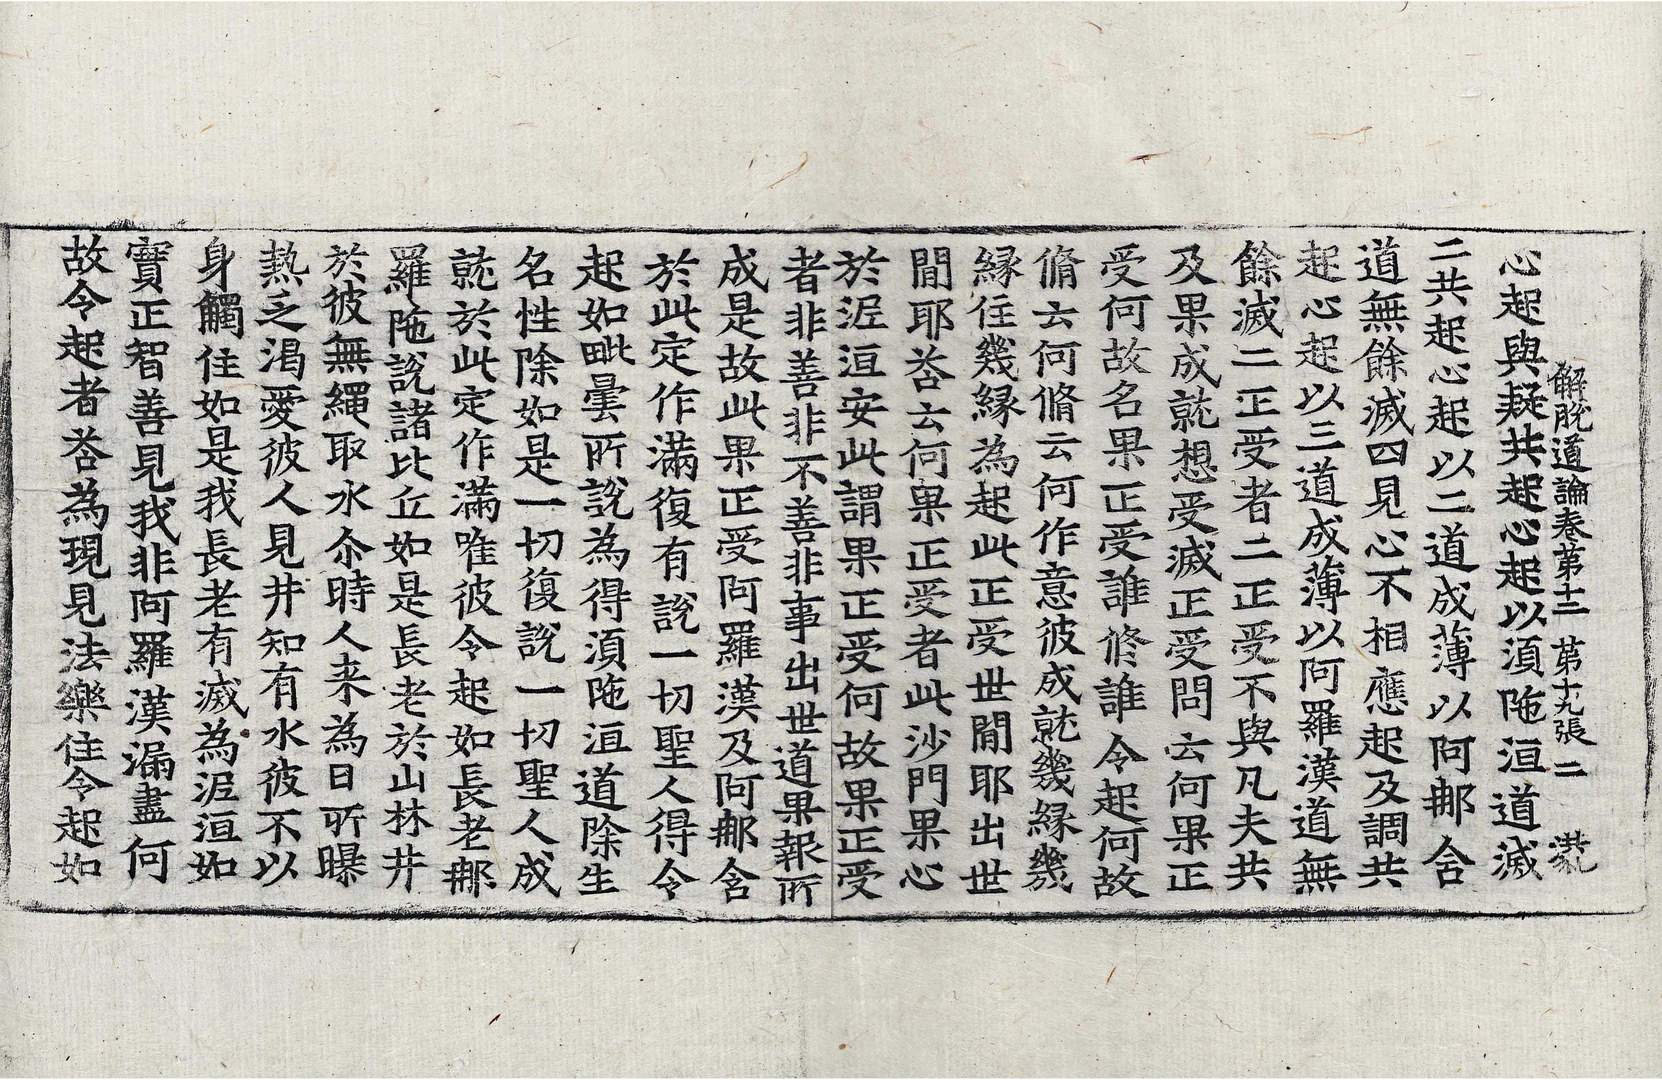 解脫道論卷第十二　第十九張　二　㵛
心起與疑共起心起以湏陁洹道滅
二共起心起以二道成薄以阿郍含
道無餘滅四見心不相應起及調共
起心起以三道成薄以阿羅漢道無
餘滅二正受者二正受不與凡夫共
及果成就想受滅正受問云何果正
受何故名果正受誰修誰令起何故
脩云何脩云何作意彼成就幾緣幾
緣住幾緣為起此正受世閒耶出世
閒耶荅云何果正受者此沙門果心
於涅洹安此謂果正受何故果正受
者非善非不善非事出世道果報所
成是故此果正受阿羅漢及阿郍含
於此定作滿復有說一切聖人得令
起如毗曇所說為得湏陁洹道除生
名性除如是一切復說一切聖人成
就於此定作滿唯彼令起如長老郍
羅陁說諸比丘如是長老於山林井
於彼無繩取水尒時人来為日所曝
熱乏渴愛彼人見井知有水彼不以
身觸住如是我長老有滅為涅洹如
實正智善見我非阿羅漢漏盡何
故令起者荅為現見法樂住令起如